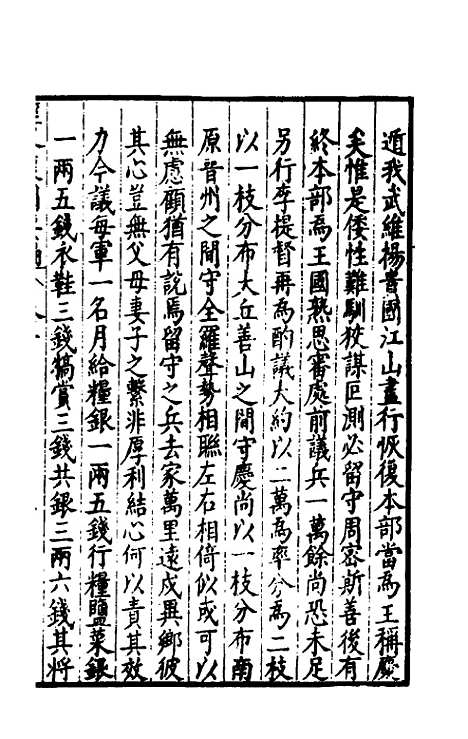 遁我武維揚晋國江山盡行恢復本部當為王稱慶
矣惟是倭性難馴狡謀叵測必留守周密斯善後有
終本部為王國熟思審處前議兵一萬餘尚恐未足
另行李提督再為酌議大約以二萬為率分為二枝
以一枝分布大丘善山之間守慶尚以一枝分布南
原晋州之間守全羅聲勢相聯左右相倚似或可以
無慮顧猶有說焉留守之兵去家萬里遠戍異鄉彼
其心豈無父母妻子之繫非厚利結心何以責其效
力今議每軍一名月給糧銀一兩五錢行糧鹽菜銀
一兩五錢衣鞋三錢犒賞三錢共銀三兩六錢其將